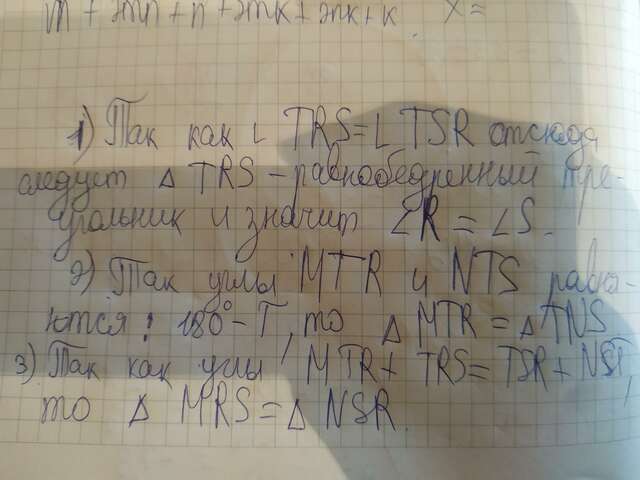 m + 2mn + n + 2mk + 2nk + k. x =
1) Так как ∟ TRS = ∟ TSR отсюда
следует △ TRS – равнобедренный тре-
угольник и значит ∠R = ∠S.
2) Так углы MTR и NTS равня-
ются: 180° - T, то △ MTR = △ TNS
3) Так как углы MTR + TRS = TSR + NST,
то △ MRS = △ NSR.